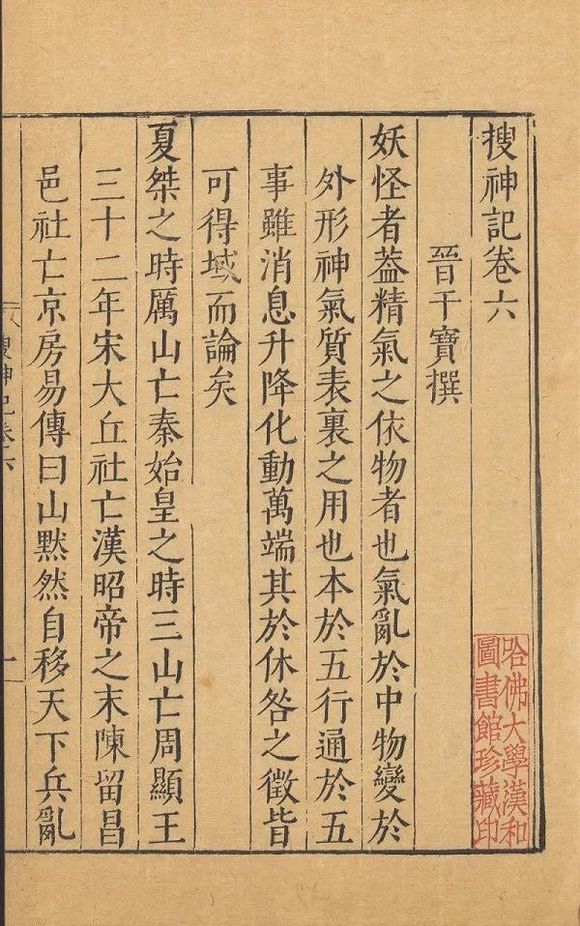 搜神記卷六
晉干寶撰
妖怪者葢精氣之依物者也氣亂於中物變於
外形神氣質表裏之用也本於五行通於五
事雖消息升降化動萬端其於休咎之徵皆
可得域而論矣
夏桀之時厲山亡秦始皇之時三山亡周顯王
三十二年宋大丘社亡漢昭帝之末陳留昌
邑社亡京房易傳曰山默然自移天下兵亂
搜神記卷六
一
哈佛大學漢和
圖書館珍藏印